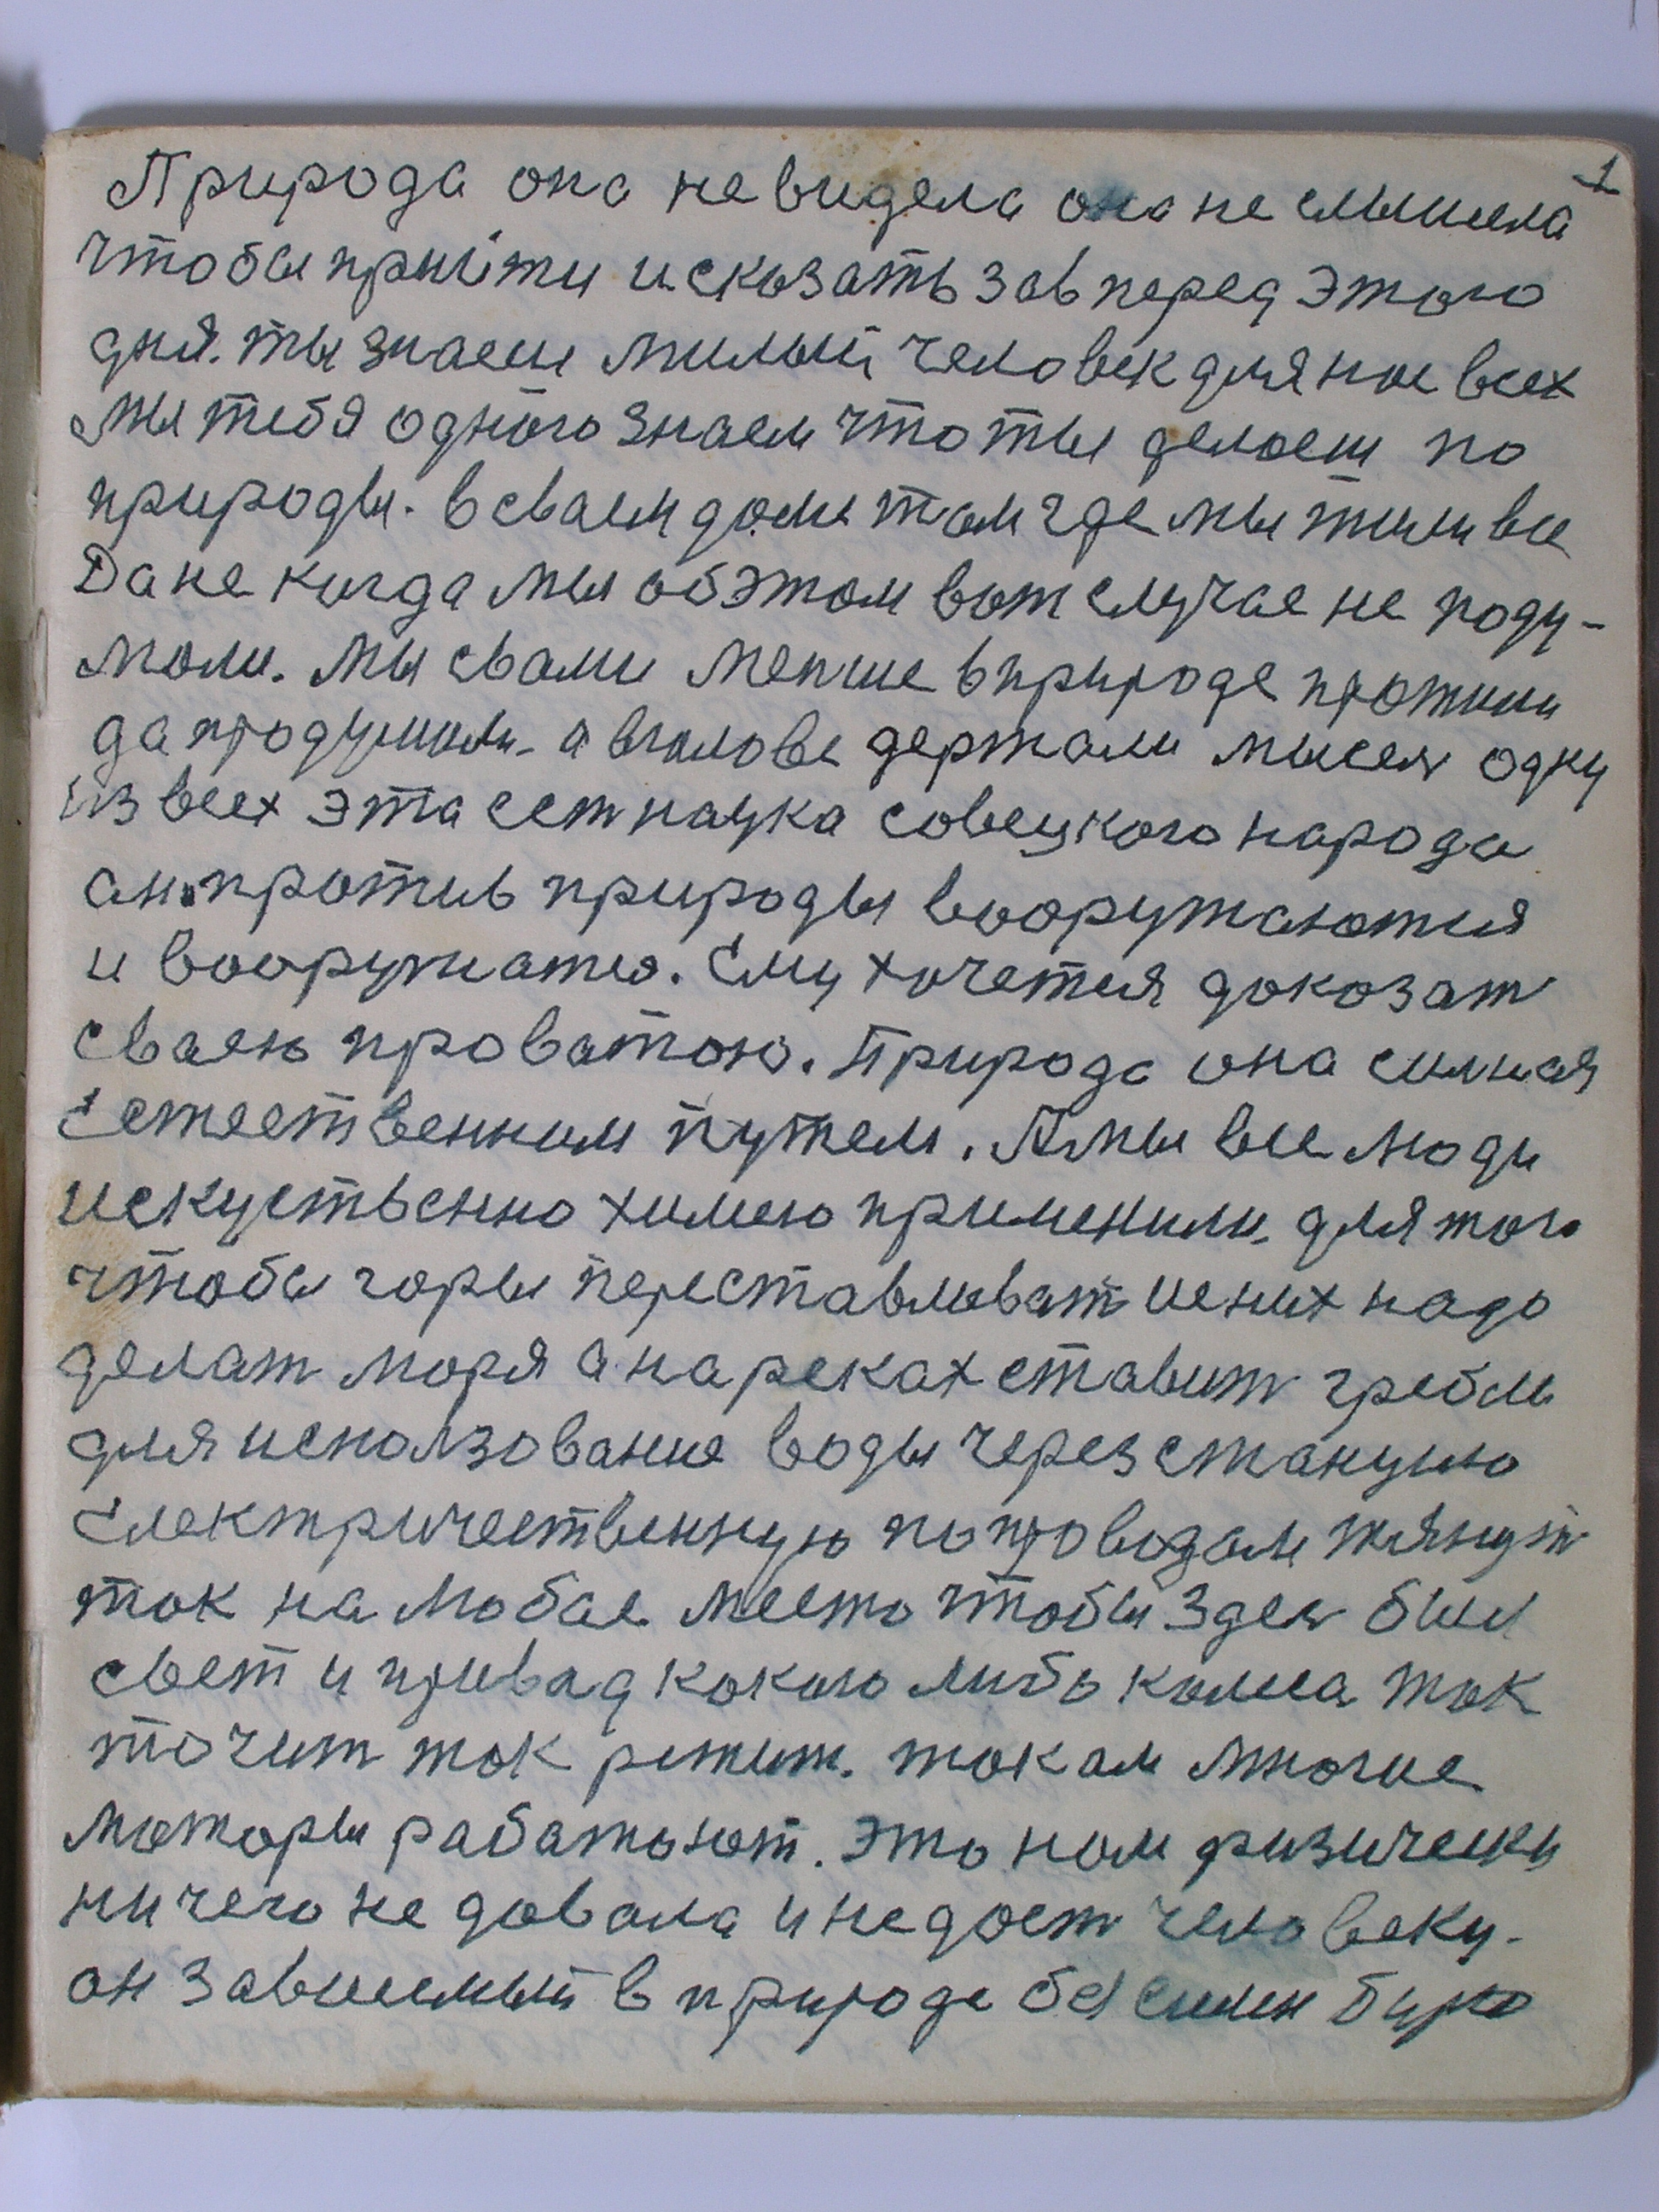 1
Природа она не видела она не слышела
чтобы прийти и сказать зав перед этого
дня. ты знаеш милый человек для нас всех
мы тебя одного знаем что ты делаеш по
природы. в сваем доме там где мы жили все
Да не когда мы об этом вот случае не поду-
мали. мы свами менше в природе прожили
да продумали. а в голове держали мысля одну
из всех эта сет наука совецкого народа
ан. против природы вооружаются
и вооружатся. Ему хочется доказат
сваею праватою. Природа она силная
Естественным путем. А мы все люди
искуственно химею применили. для того
чтобы горы переставливат из них надо
делат моря а на реках ставит гребли
для исползование воды через станцию
Електричественную по проводам тянут
ток на любае место чтобы здеся был
свет и привад какого либо калеса ток
точит ток режит. током многие
моторы работают. это нам физически
ни чего не давала и не дает человеку.
он зависемый в природе бессилен